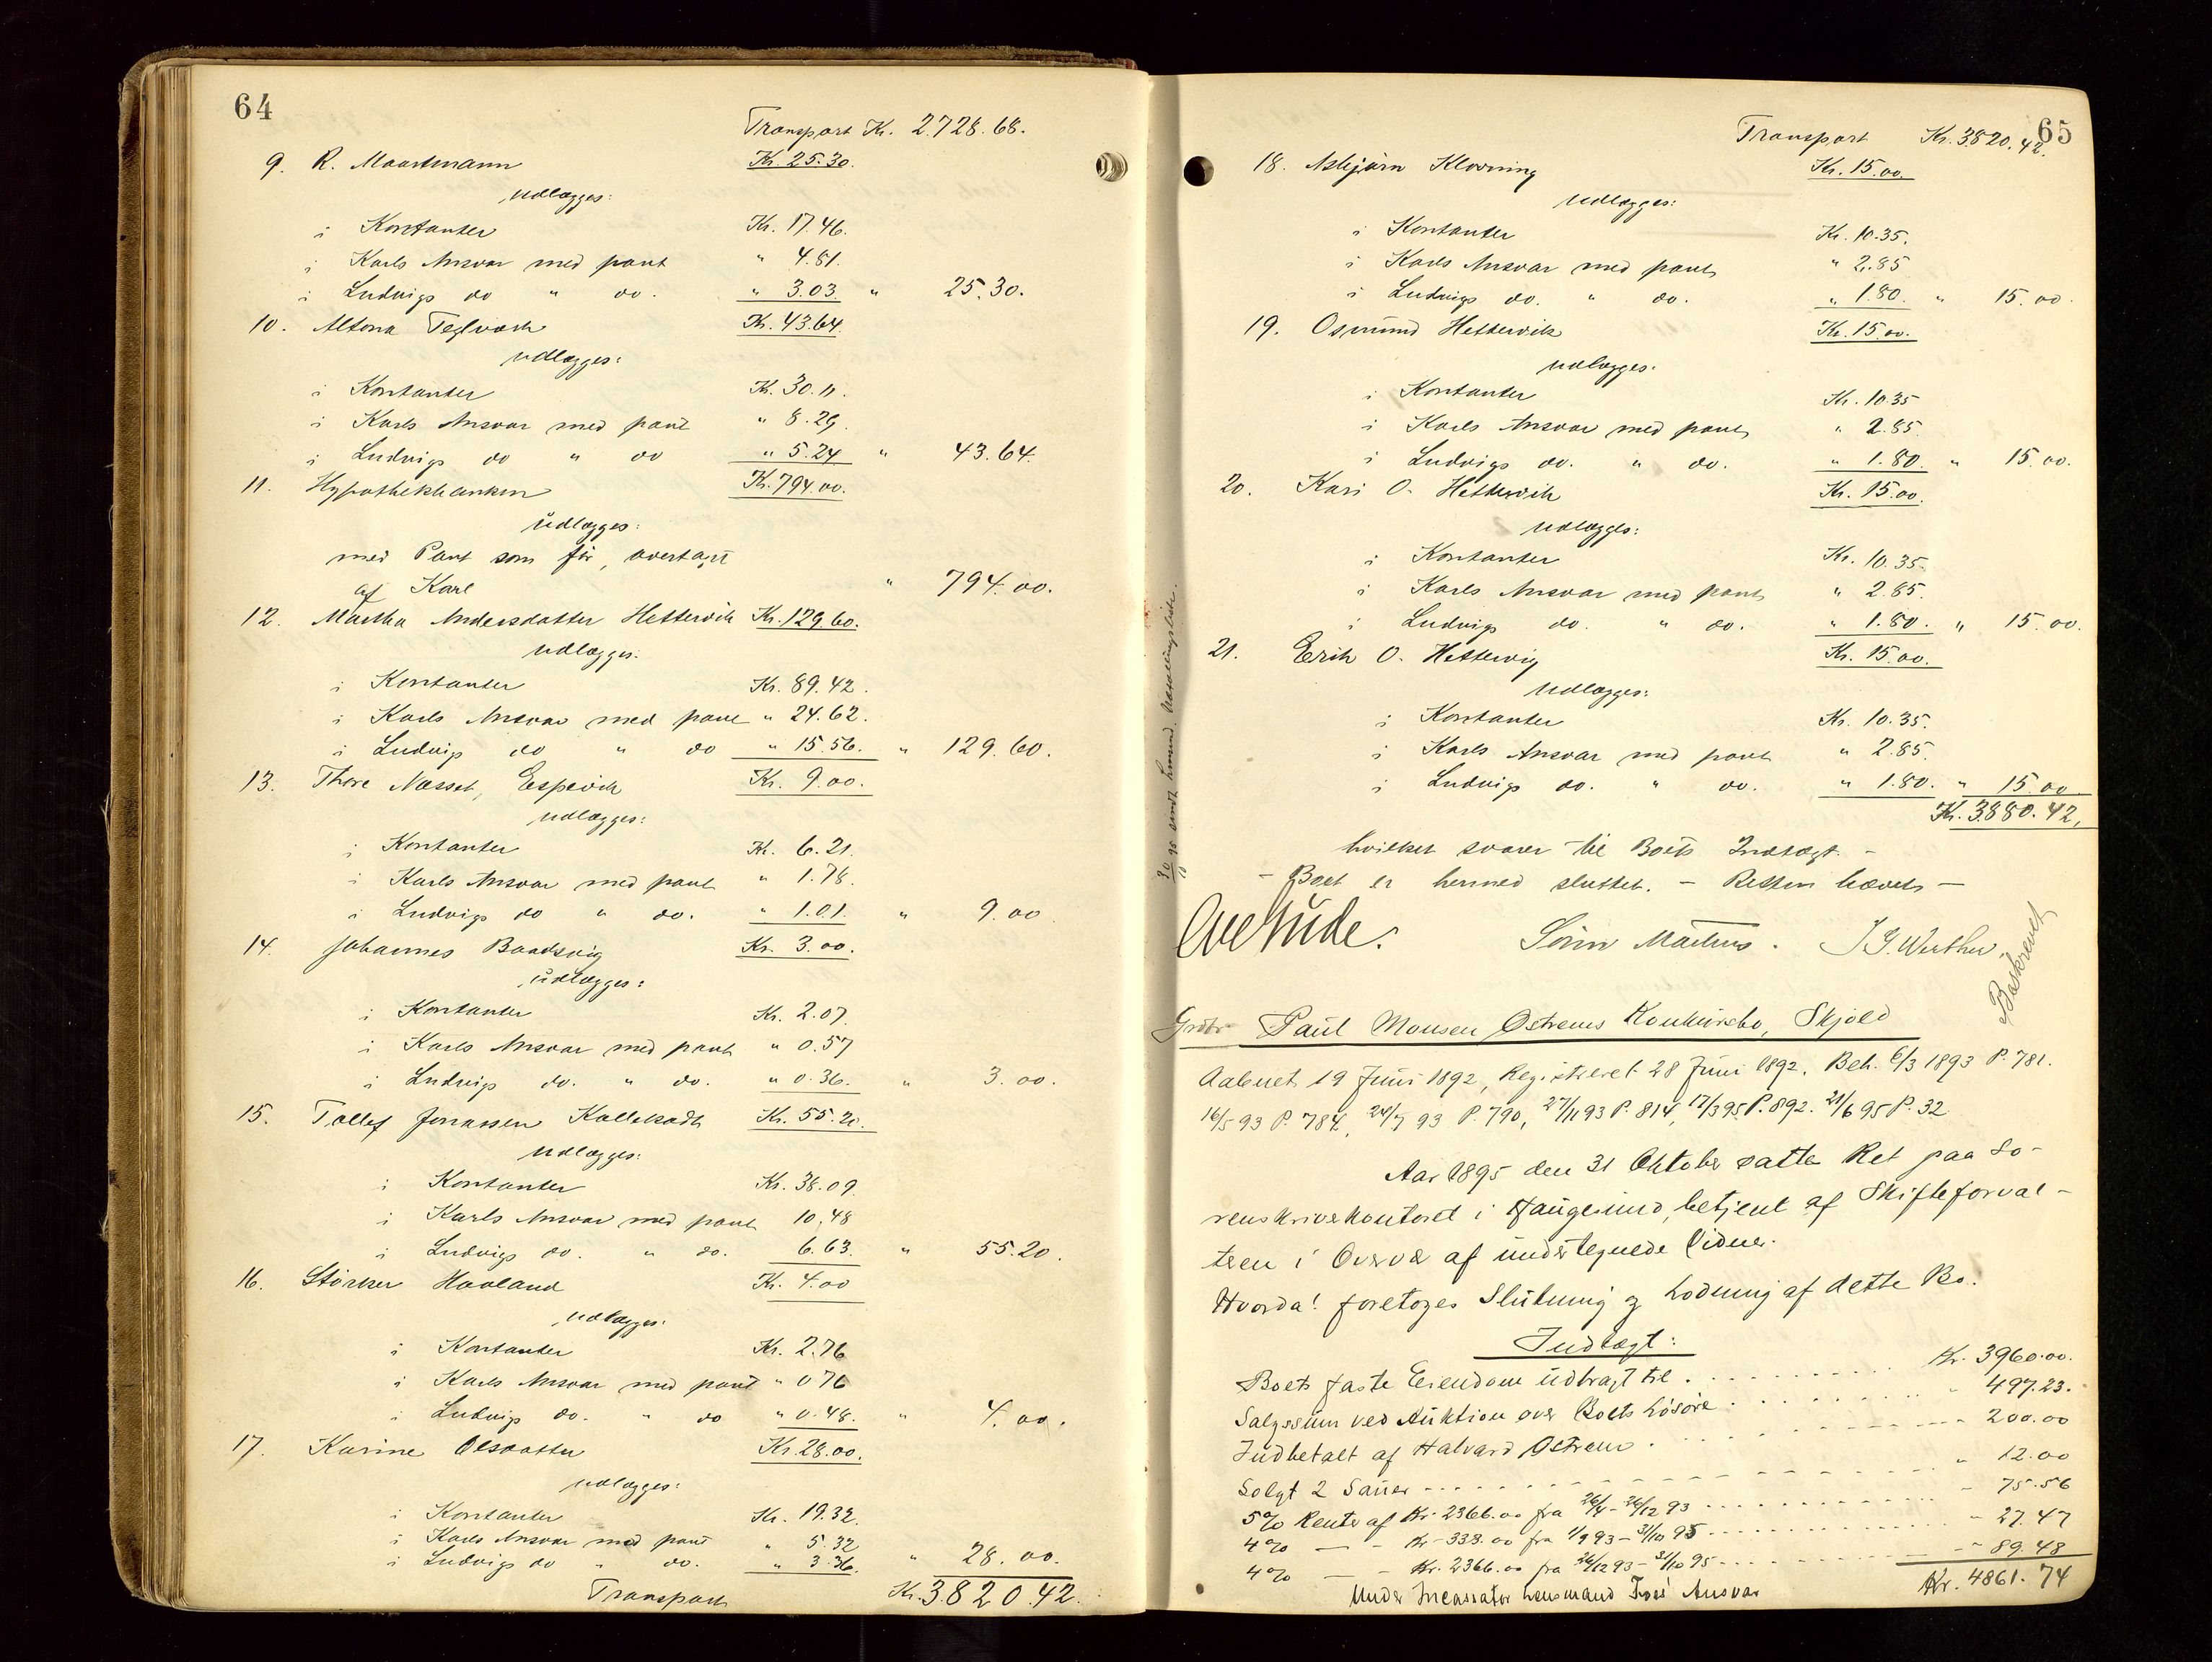 64
Transport Kr. 2728.68.
9. R. Maartmann Kr. 25.30.
udlægges:
i Kontanter Kr. 17.46.
i Karls Ansvar med pant " 4.81.
i Ludvigs do " do. " 3.03. " 25.30.
10. Altona Teglværk Kr. 43.64.
udlægges:
i Kontanter Kr. 30.11.
i Karls Ansvar med pant " 8.29.
i Ludvigs do " do " 5.24 " 43.64.
11. Hypothekbanken Kr. 794.00.
udlægges:
med Pant som før, overtagt
af Karl " 794.00.
12. Martha Andersdatter Hettervik Kr. 129.60.
udlægges:
i Kontanter Kr. 89.42.
i Karls Ansvar med pant " 24.62.
i Ludvigs do " do " 15.56. " 129.60.
13. Thore Næsset, Espevik Kr. 9.00.
udlægges:
i Kontanter Kr. 6.21.
i Karls Ansvar med pant " 1.78.
i Ludvigs do " do. " 1.01. " 9.00
14. Johannes Baadsvig Kr. 3.00.
udlægges:
i Kontanter Kr. 2.07.
i Karls Ansvar med pant " 0.57
i Ludvigs do. " do. " 0.36. " 3.00.
15. Tollef Jonassen Kr. 55.20.
udlægges:
i Kontanter Kr. 38.09.
i Karls Ansvar med pant 10.48
i Ludvigs do. " do. 6.63. " 55.20.
16. Størker Haaland Kr. 4.00
udlægges:
i Kontanter Kr. 2.76
i Karls Ansvar med pant " 0 76
i Ludvigs do. " do " 0.48. " 4.00.
17. Karine Olsdatter Kr. 28.00.
udlægges:
i Kontanter Kr. 19.32.
i Karls Ansvar med pant " 5.32
i Ludvigs do " do. " 3.36. " 28.00.
Transport Kr. 3820.42.
65
Transport Kr. 3820.42.
18. Asbjørn Klovning Kr. 15.00.
udlægges:
i Kontanter Kr. 10.35.
i Karls Ansvar med pant " 2.85
i Ludvigs do. " do. " 1.80. " 15.00.
19. Osmund Hettervik Kr. 15.00.
udlægges.
i Kontanter Kr. 10.35
i Karls Ansvar med pant " 2.85.
i Ludvigs do. " do. " 1.80. " 15.00.
20. Kari O. Hettervik Kr. 15.00.
udlægges:
i Kontanter Kr. 10.35.
i Karls Ansvar med pant " 2.85.
i Ludvigs do. " do. " 1.80. " 15.00.
21. Erik O. Hettervig Kr. 15.00.
udlægges:
i Kontanter Kr. 10.35.
i Karls Ansvar med pant " 2.85.
i Ludvigs do. " do. " 1.80. " 15.00
Kr. 3880.42.
hvilket svarer til Boets Indtægt. -
- Boet er hermed sluttet. - Retten hævet -
Sørin J. G. Werther.
Beskrevet
Grdbr. Paul Monsen Østrems Konkursbo, Skjold
Aabnet 19 Juni 1892, Registreret 28 Juni 1892. Beh. 6/3 1893 P. 781.
16/5 93 P. 784, 24/7 93 P. 790, 27/11 93 P. 814, 17/3 95 P. 892. 21/6 95 P. 32
Aar 1895 den 31 Oktober sattes Ret paa So-
renskriverkontoret i Haugesund, betjent af Skifteforval-
teren i Overvær af undertegnede Vidner.
Hvorda! foretoges Slutning og Lodning af dette Bo.
Indtægt:
Boets faste Eiendom udbragt til Kr. 3960.00.
Salgssum ved Auktion over Boets Løsøre " 497.23.
Indbetalt af Halvard Østrem 200.00
Solgt 2 Sauer " 12.00
5% Rente af Kr. 2366.00 fra 26/4 - 26/12 93 " 75.56
4% — - Kr. 338.00 fra 1/9 93 - 31/10 95 " 27.47
4% — - Kr. 2366.00 fra 26/12 93 - 31/10 95 " 89.48
Under Incassator Lensmand Ansvar Kr. 4861.74